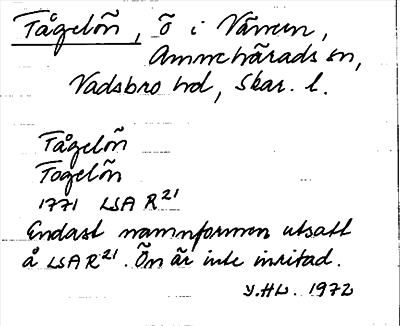 Tågelön, ö i Vänern,
Amnehärads sn,
Vadsbro hd, Skar. l.
Tågelön
Togelön
1771 LSA R²¹
Endast namnformen utsatt
å LSA R²¹. Ön är inte inritad.
1972